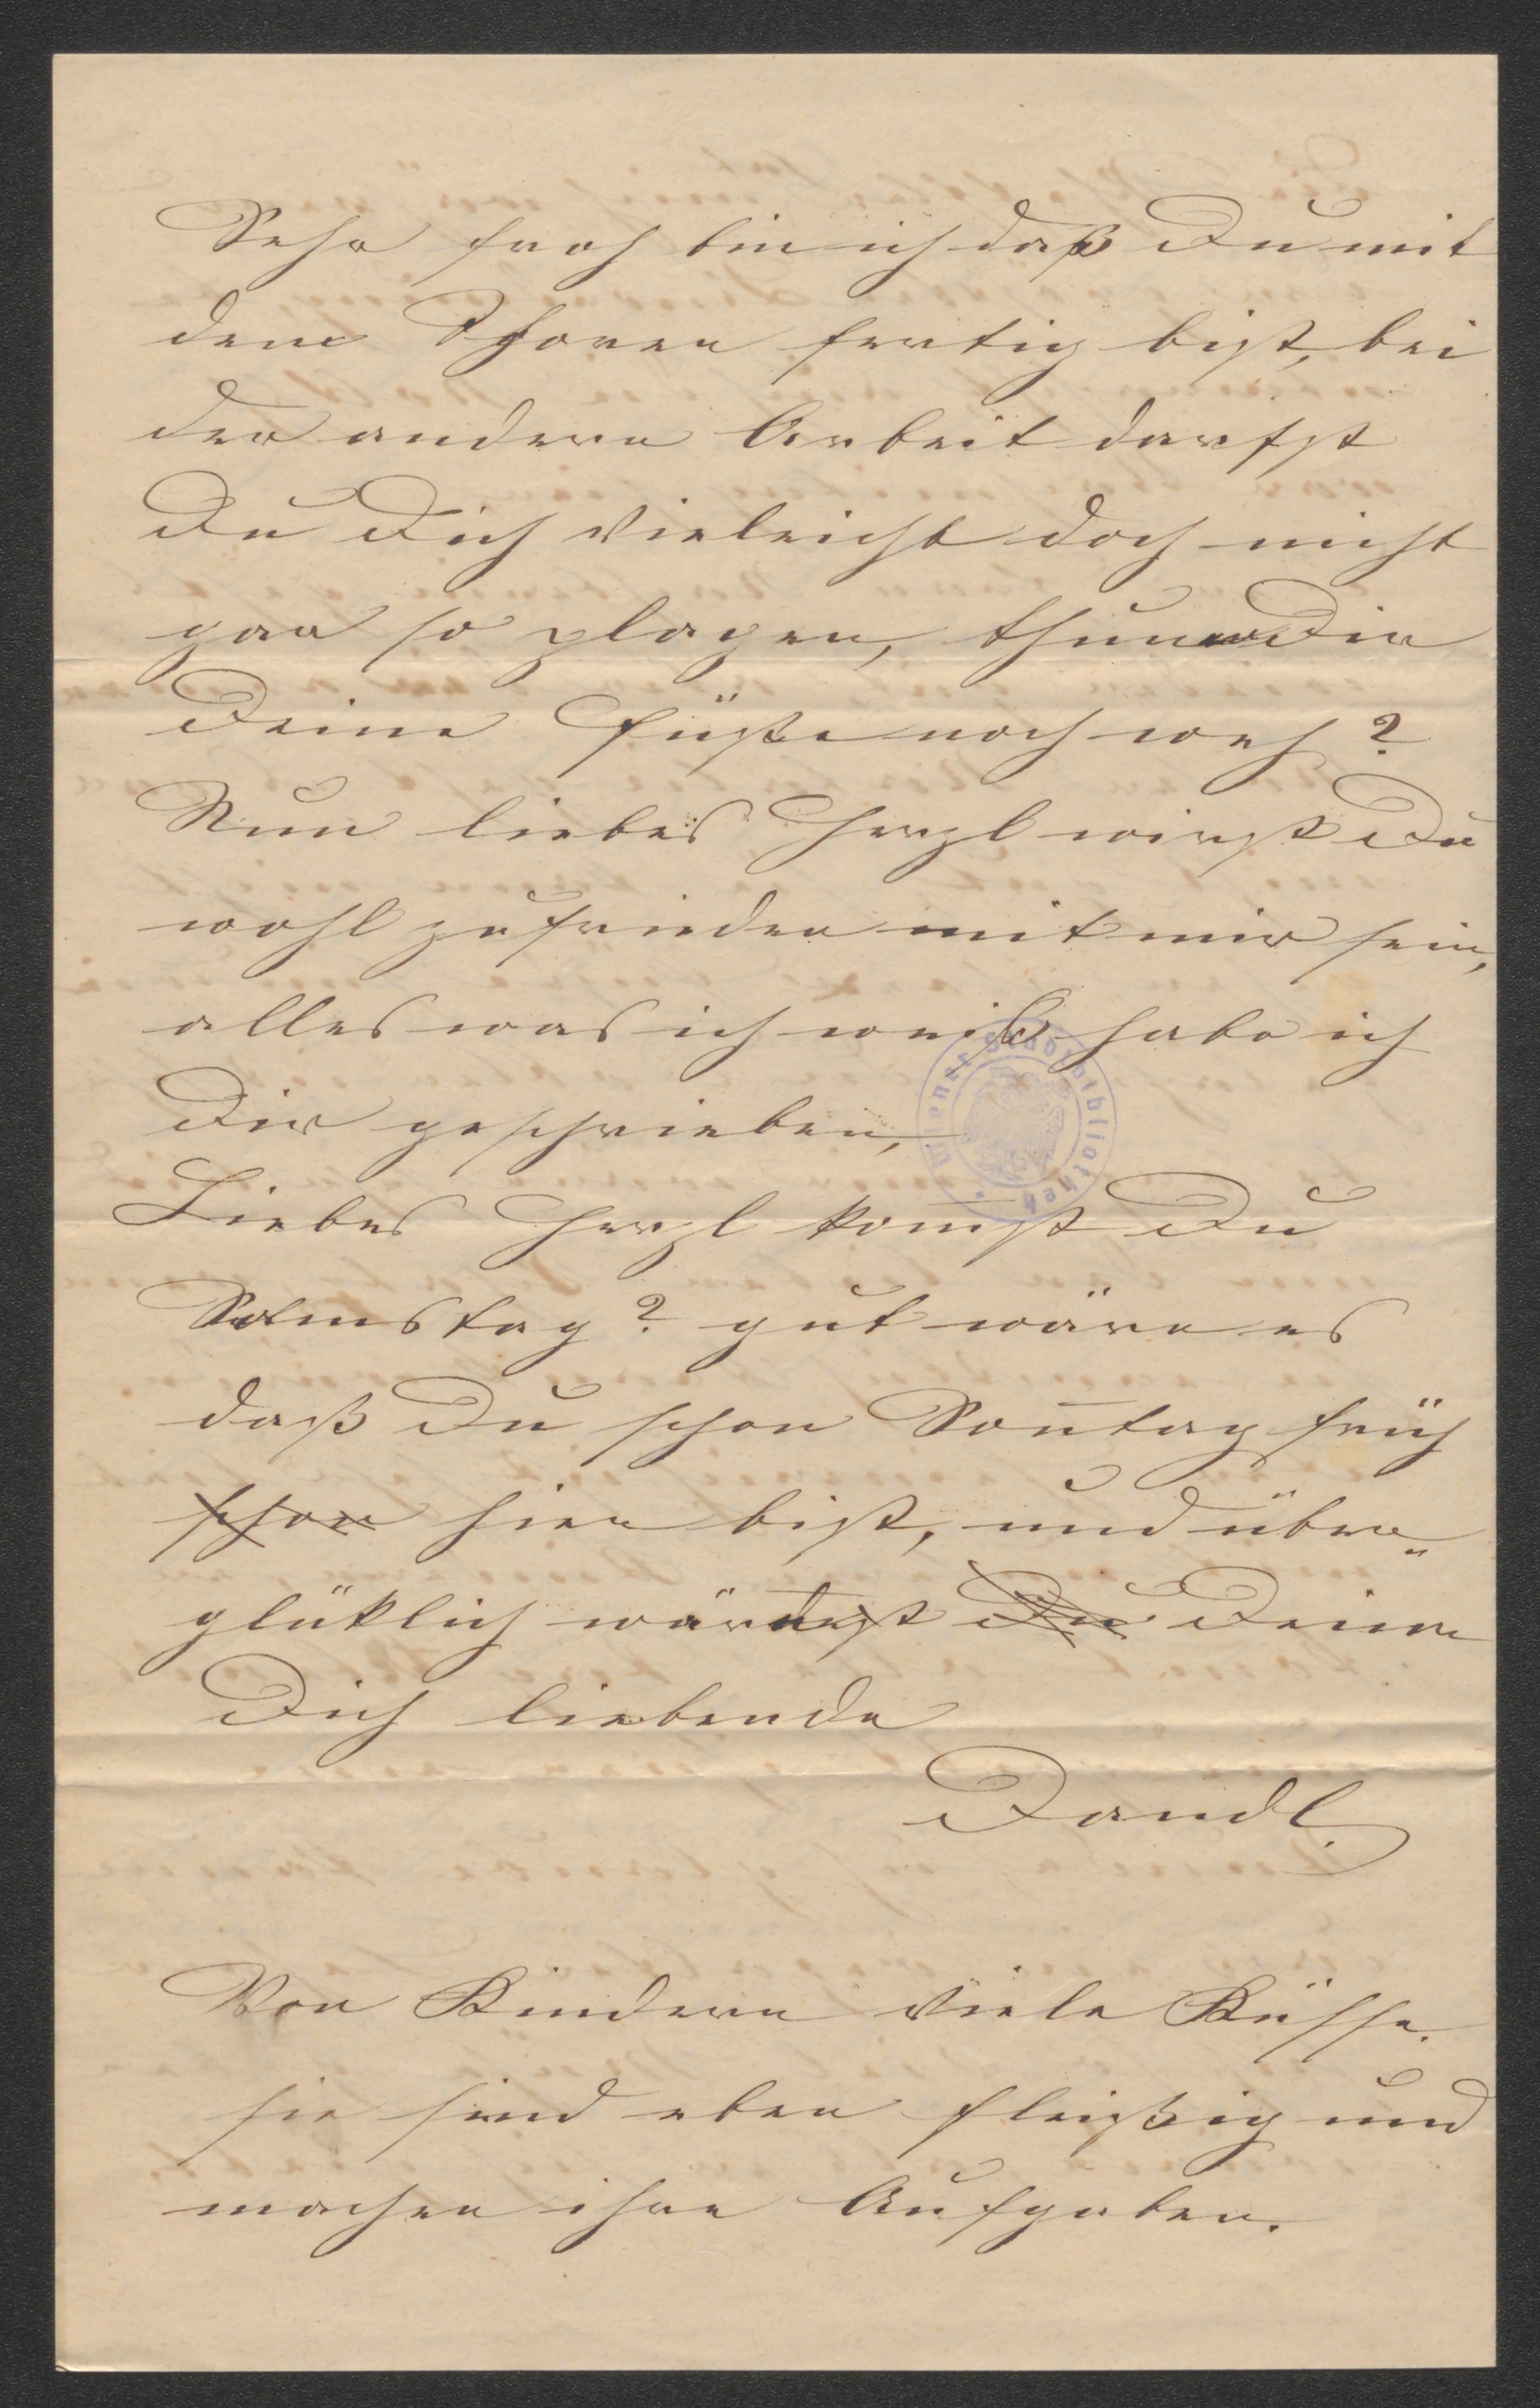 Sehr froh bin ich daß Du mit
dem Thoren fertig bist, bei
der andern Arbeit darfst
Du Dich vieleicht doch nicht
gar so plagen, thun Dir
Deine Füße noch weh?
Nun liebes Herzl wirst Du
wohl zufrieden mit mir sein,
alles was ich weiß habe ich
Dir geschrieben,
Liebes Herzl komst Du
Samstag? gut wäre es
daß Du schon Son̅tag früh
schon hier bist, und über„
glüklich würdest Du Deine
Dich liebende
Dandl.
Von Kindern viele Küsse.
sie sind eben fleißig und
machen ihre Aufgaben.
Wiener Stadtbibliothek